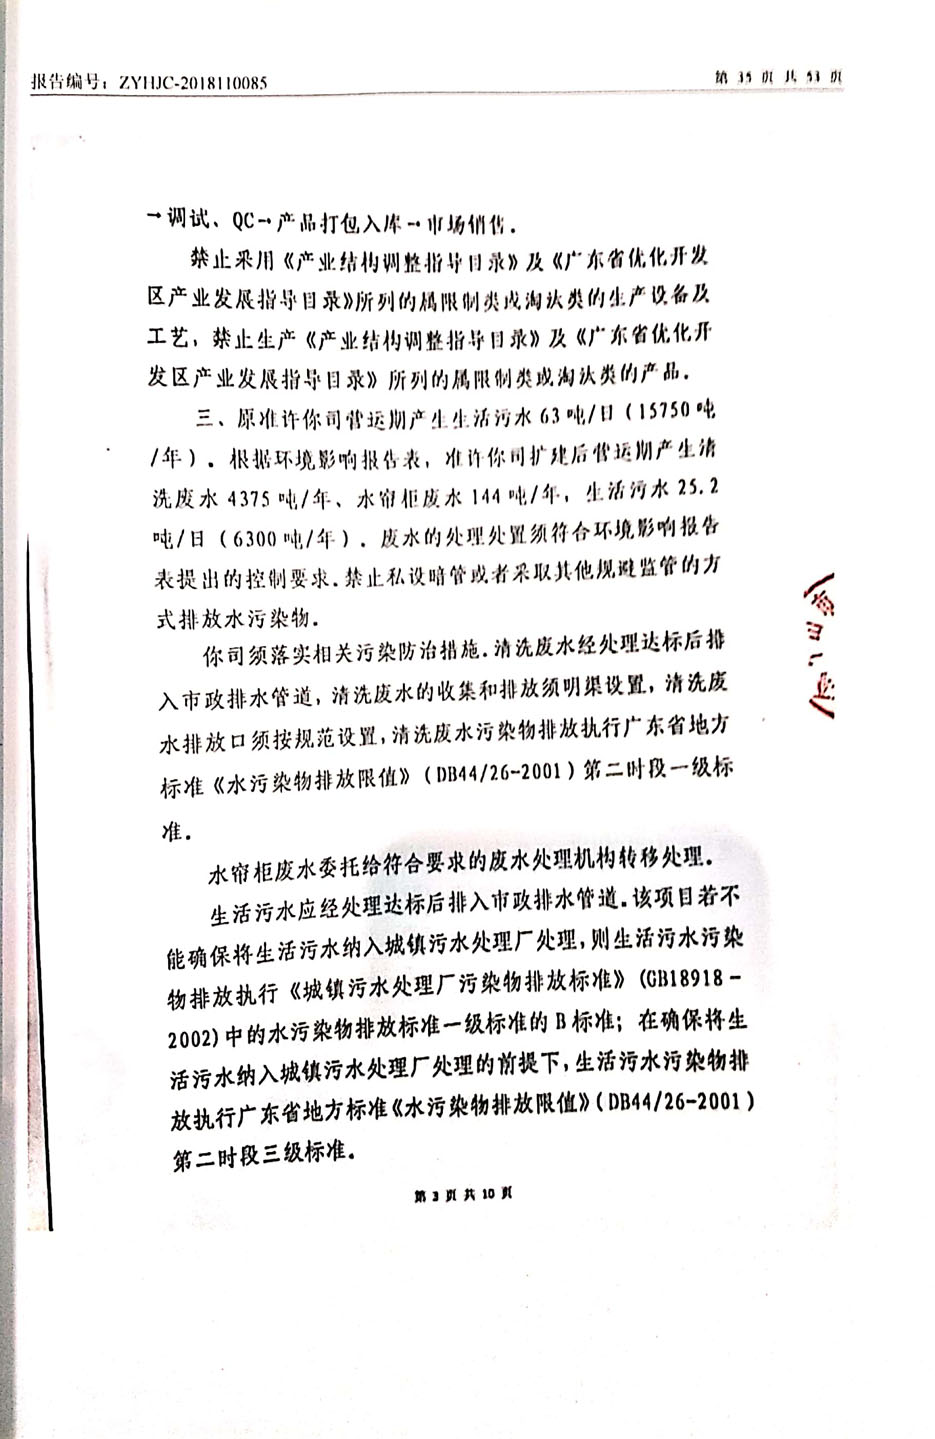 报告编号：ZYHJC-2018110085
第 35 页 共 53 页
→调试、QC→产品打包入库→市场销售.
禁止采用《产业结构调整指导目录》及《广东省优化开发
区产业发展指导目录》所列的属限制类或淘汰类的生产设备及
工艺，禁止生产《产业结构调整指导目录》及《广东省优化开
发区产业发展指导目录》所列的属限制类或淘汰类的产品.
三、原准许你司营运期产生生活污水 63 吨/日（15750 吨
/年）. 根据环境影响报告表，准许你司扩建后营运期产生清
洗废水 4375 吨/年、水帘柜废水 144 吨/年，生活污水 25.2
吨/日（6300 吨/年）. 废水的处理处置须符合环境影响报告
表提出的控制要求. 禁止私设暗管或者采取其他规避监管的方
式排放水污染物.
你司须落实相关污染防治措施. 清洗废水经处理达标后排
入市政排水管道，清洗废水的收集和排放须明渠设置，清洗废
水排放口须按规范设置，清洗废水污染物排放执行广东省地方
标准《水污染物排放限值》（DB44/26-2001）第二时段一级标
准.
水帘柜废水委托给符合要求的废水处理机构转移处理.
生活污水应经处理达标后排入市政排水管道. 该项目若不
能确保将生活污水纳入城镇污水处理厂处理，则生活污水污染
物排放执行《城镇污水处理厂污染物排放标准》(GB18918-
2002)中的水污染物排放标准一级标准的 B 标准；在确保将生
活污水纳入城镇污水处理厂处理的前提下，生活污水污染物排
放执行广东省地方标准《水污染物排放限值》（DB44/26-2001）
第二时段三级标准.
第 3 页 共 10 页